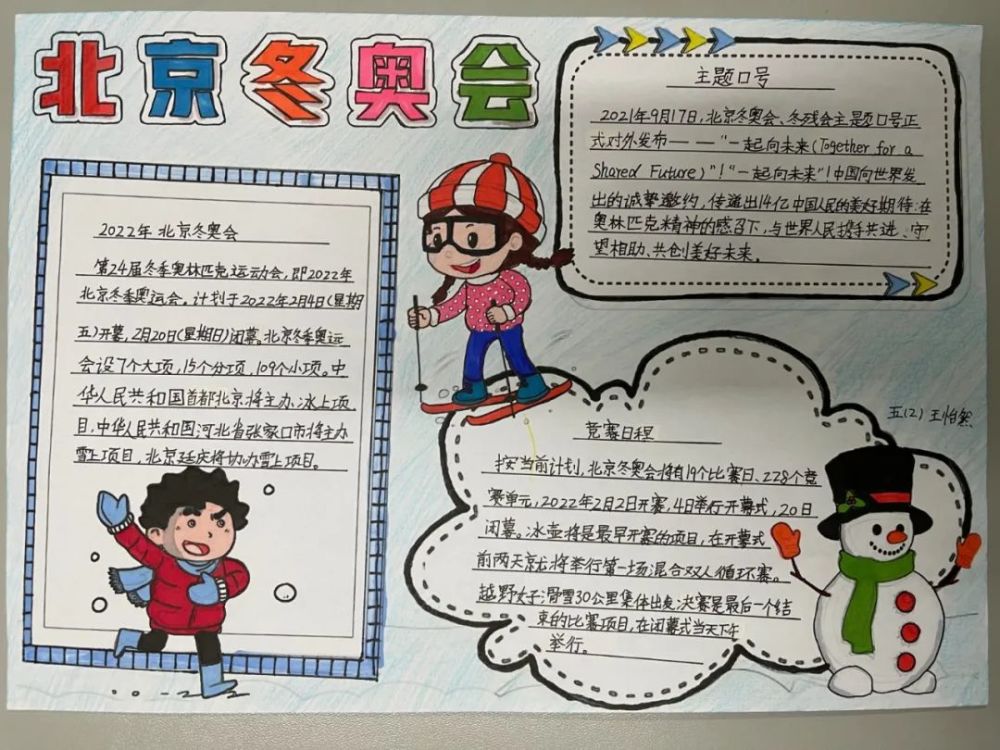 北京冬奥会
主题口号
2021年9月17日,北京冬奥会、冬残会主题口号正
式对外发布——“一起向未来(Together for a
Shared Future)”!“一起向未来”!中国向世界发
出的诚挚邀约,传递出14亿中国人民的美好期待:在
奥林匹克精神的感召下,与世界人民携手共进、守
望相助、共创美好未来。
2022年北京冬奥会
第24届冬季奥林匹克运动会,即2022年
北京冬季奥运会。计划于2022年2月4日(星期
五)开幕,2月20日(星期日)闭幕。北京冬季奥运
会设7个大项,15个分项,109个小项。中
华人民共和国首都北京将主办冰上项
目,中华人民共和国河北省张家口市将主办
雪上项目,北京延庆将协办雪上项目。
五(2) 王怡然
竞赛日程
按当前计划,北京冬奥会将有19个比赛日、228个竞
赛单元,2022年2月2日开赛,4日举行开幕式,20日
闭幕。冰壶将是最早开赛的项目,在开幕式
前两天就将举行第一场混合双人循环赛。
越野女子滑雪30公里集体出发决赛是最后一个结
束的比赛项目,在闭幕式当天下午
举行。